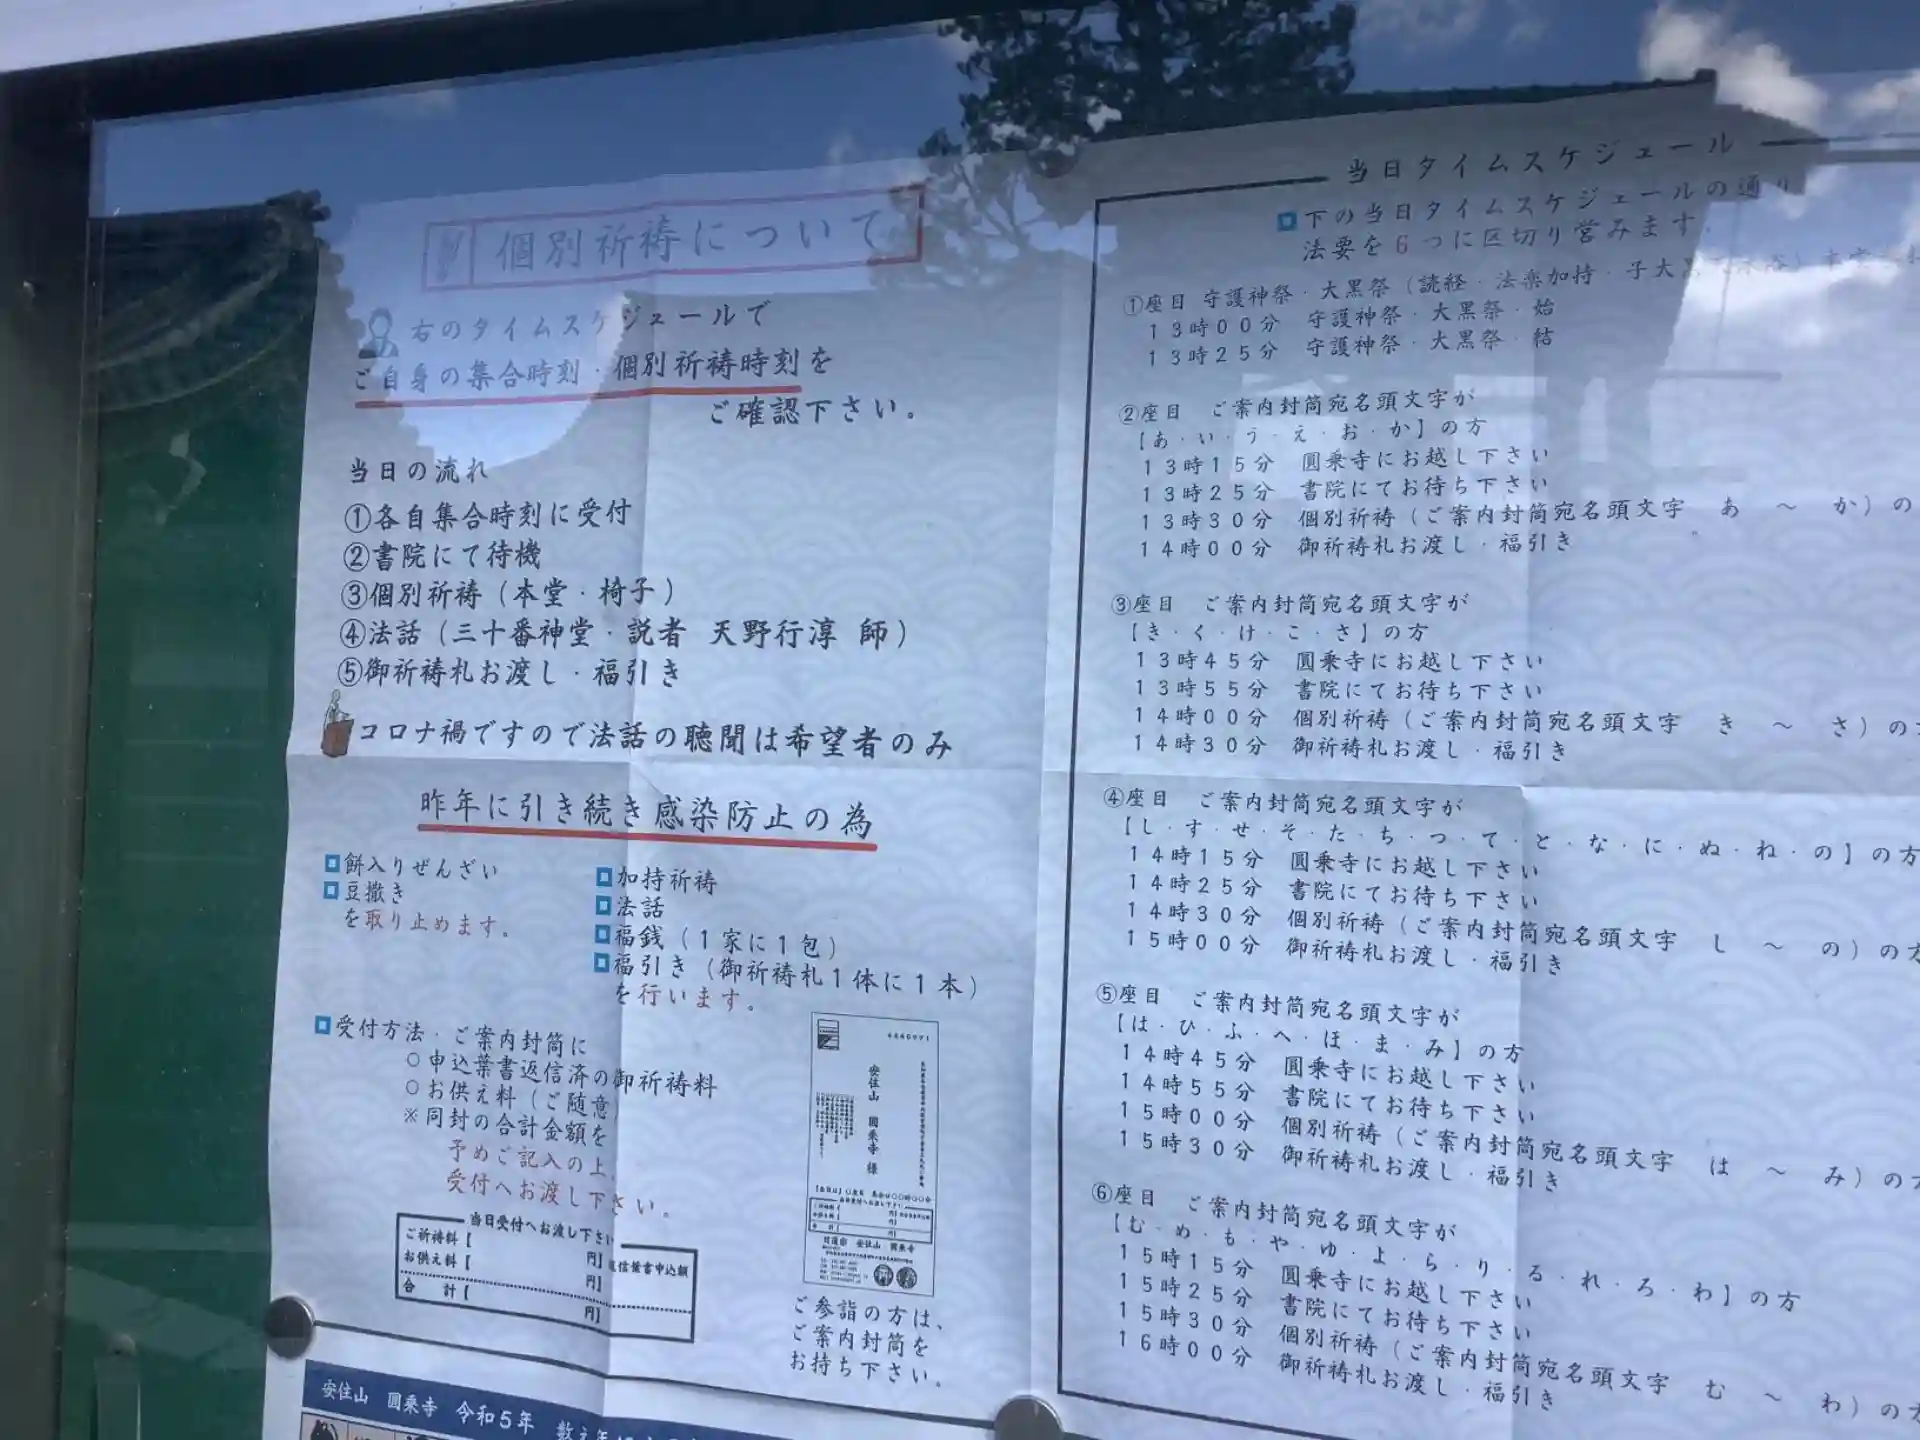 個別祈祷について
右のタイムスケジュールで
ご自身の集合時刻・個別祈祷時刻を
ご確認下さい。
当日の流れ
①各自集合時刻に受付
②書院にて待機
③個別祈祷(本堂・椅子)
④法話(三十番神堂・説者 天野行淳 師)
⑤御祈祷札お渡し・福引き
コロナ禍ですので法話の聴聞は希望者のみ
昨年に引き続き感染防止の為
餅入りぜんざい
豆撒き
を取り止めます。
加持祈祷
法話
福銭(1家に1包)
福引き(御祈祷札1体に1本)
を行います。
受付方法・ご案内封筒に
○申込葉書返信済の御祈祷料
○お供え料(ご随意)
※同封の合計金額を
予めご記入の上、
受付へお渡し下さい。
当日受付へお渡し下さい
ご祈祷料【 円】返信葉書申込額
お供え料【 円】
合 計【 円】
安住山 圓乗寺 様
日蓮宗 安住山 圓乗寺
ご参詣の方は、
ご案内封筒を
お持ち下さい。
安住山 圓乗寺 令和5年 数え年
当日タイムスケジュール
下の当日タイムスケジュールの通り
法要を6つに区切り営みます。
①座目 守護神祭・大黒祭(読経・法楽加持・子大黒
13時00分 守護神祭・大黒祭・始
13時25分 守護神祭・大黒祭・結
②座目 ご案内封筒宛名頭文字が
【あ・い・う・え・お・か】の方
13時15分 圓乗寺にお越し下さい
13時25分 書院にてお待ち下さい
13時30分 個別祈祷(ご案内封筒宛名頭文字 あ ~ か)の
14時00分 御祈祷札お渡し・福引き
③座目 ご案内封筒宛名頭文字が
【き・く・け・こ・さ】の方
13時45分 圓乗寺にお越し下さい
13時55分 書院にてお待ち下さい
14時00分 個別祈祷(ご案内封筒宛名頭文字 き ~ さ)の
14時30分 御祈祷札お渡し・福引き
④座目 ご案内封筒宛名頭文字が
【し・す・せ・そ・た・ち・つ・て・と・な・に・ぬ・ね・の】の方
14時15分 圓乗寺にお越し下さい
14時25分 書院にてお待ち下さい
14時30分 個別祈祷(ご案内封筒宛名頭文字 し ~ の)の方
15時00分 御祈祷札お渡し・福引き
⑤座目 ご案内封筒宛名頭文字が
【は・ひ・ふ・へ・ほ・ま・み】の方
14時45分 圓乗寺にお越し下さい
14時55分 書院にてお待ち下さい
15時00分 個別祈祷(ご案内封筒宛名頭文字 は ~ み)の方
15時30分 御祈祷札お渡し・福引き
⑥座目 ご案内封筒宛名頭文字が
【む・め・も・や・ゆ・よ・ら・り・る・れ・ろ・わ】の方
15時15分 圓乗寺にお越し下さい
15時25分 書院にてお待ち下さい
15時30分 個別祈祷(ご案内封筒宛名頭文字 む ~ わ)の方
16時00分 御祈祷札お渡し・福引き